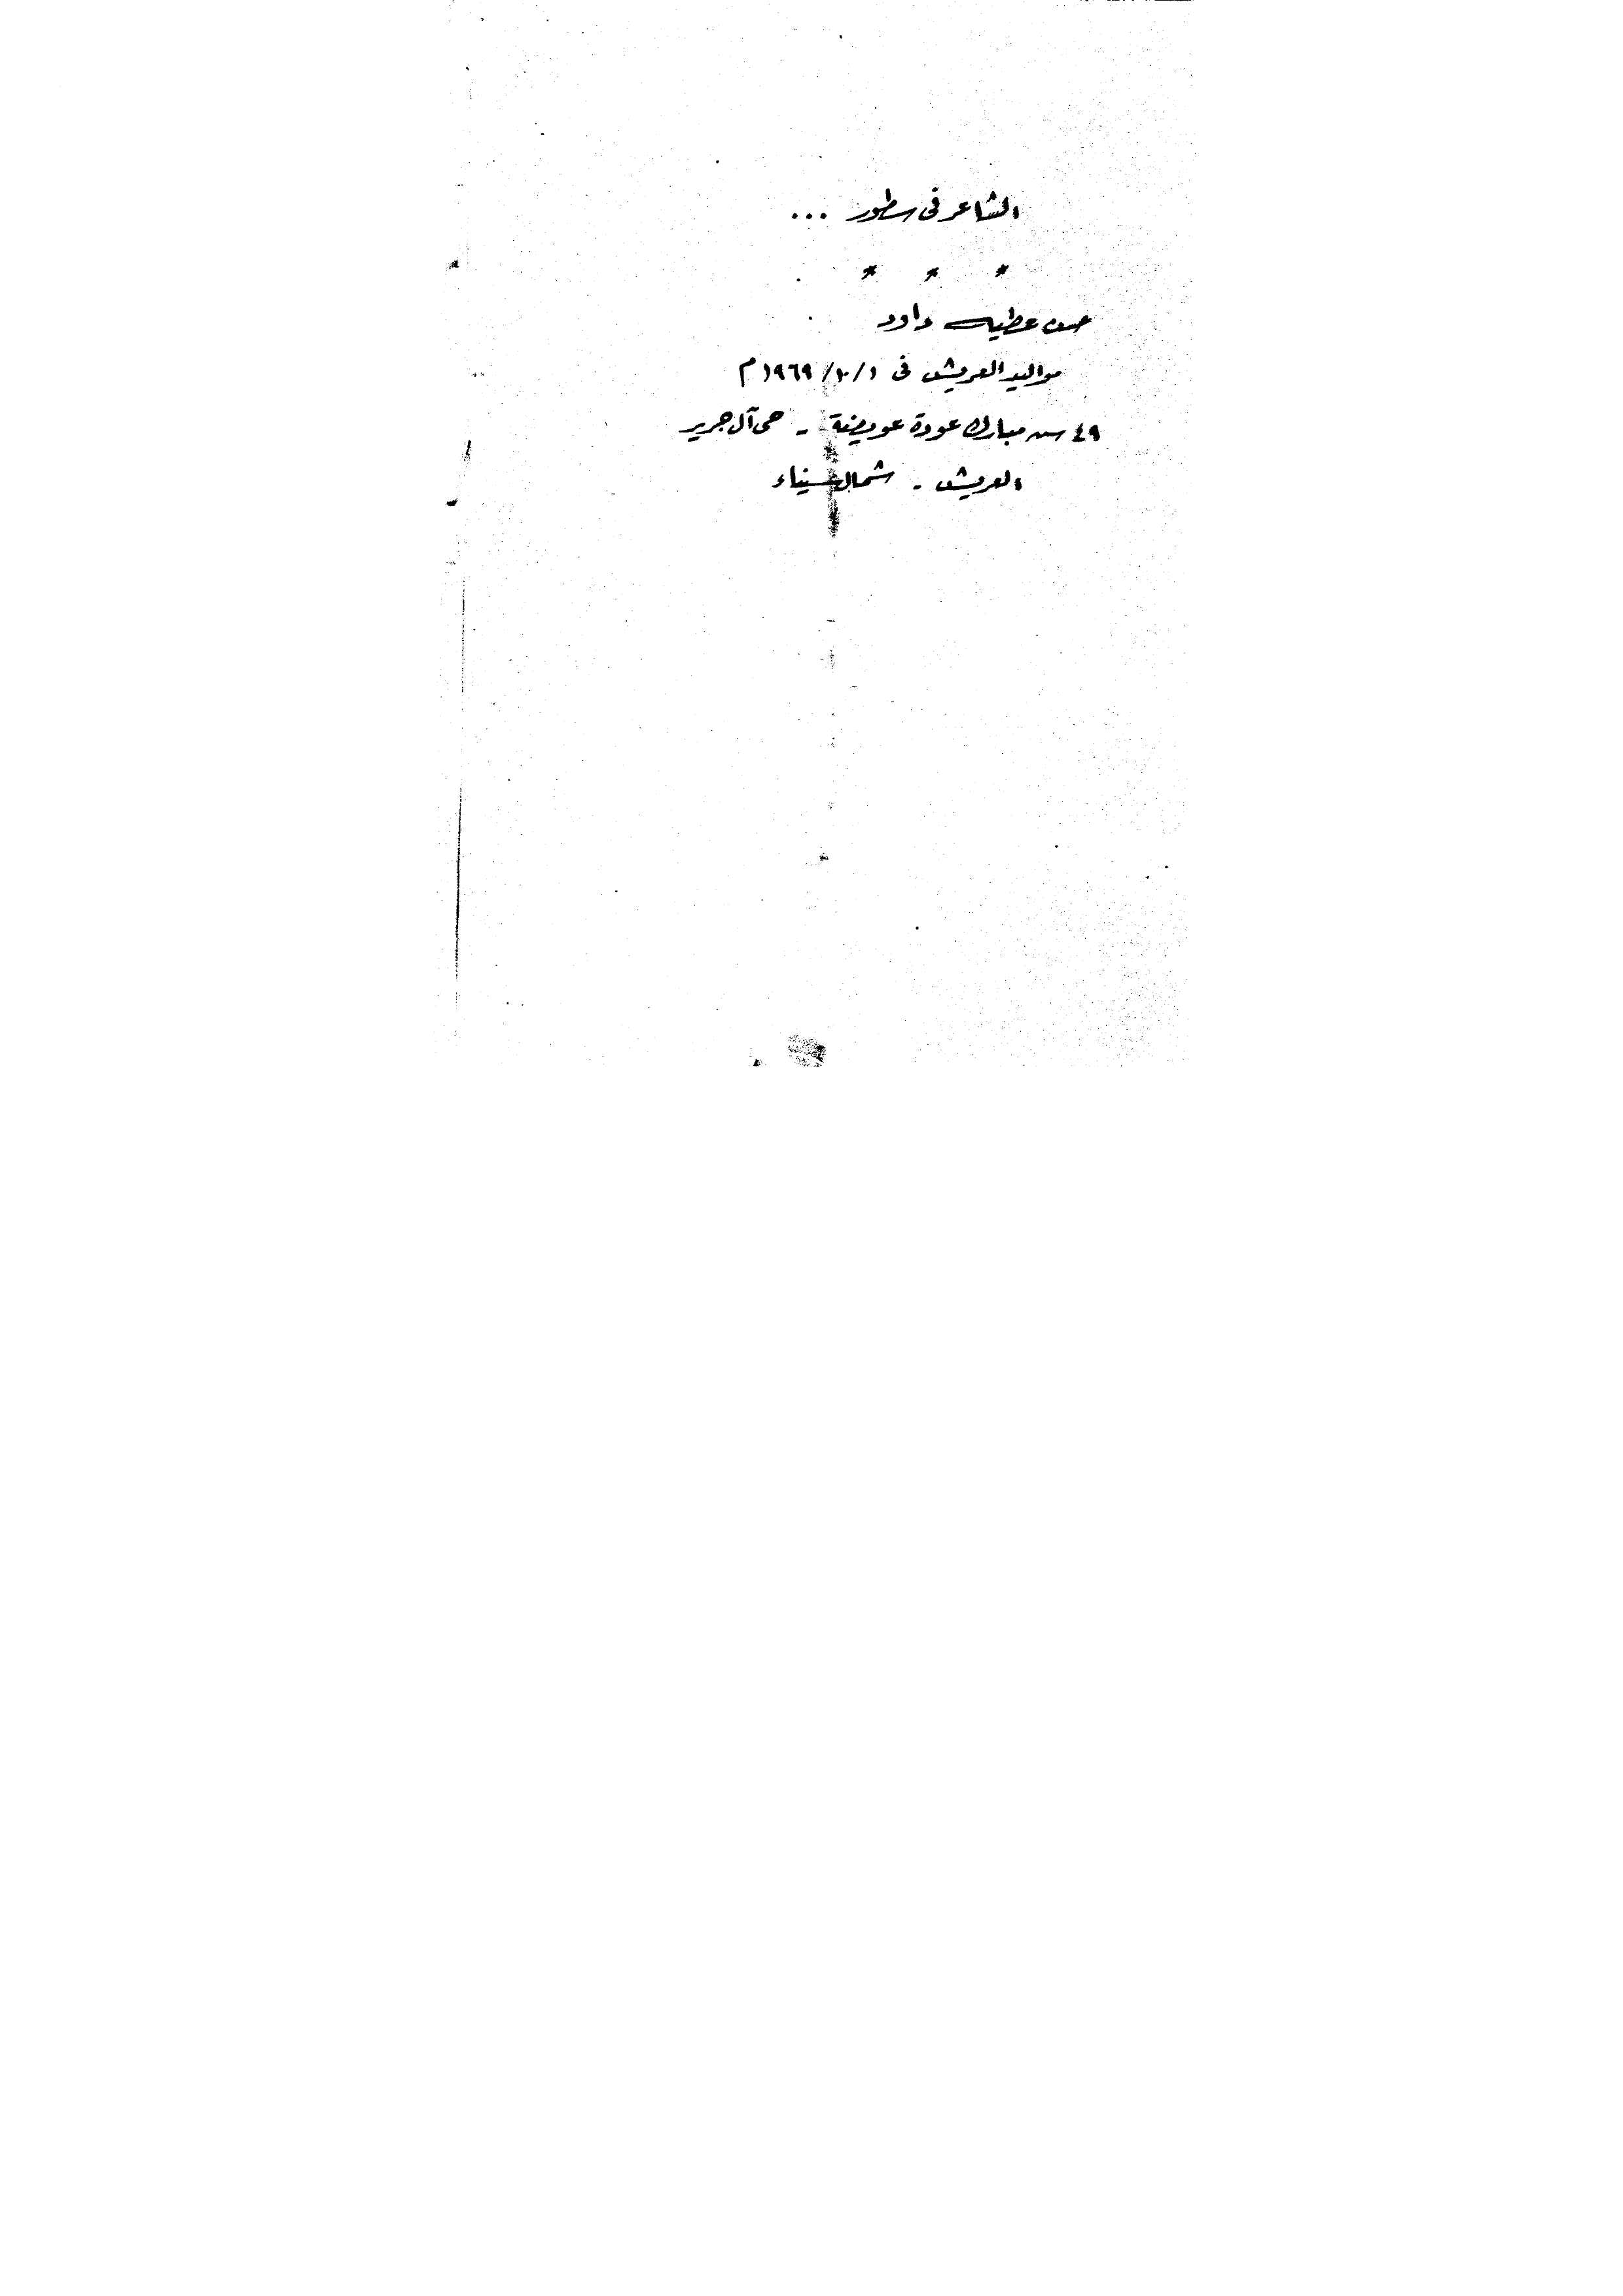 الشاعر فى سطور ...
* * *
حسن عطيه داود
مواليد العريش فى ١ / ١٠ / ١٩٦٩ م
٤٩ ش مبارك عودة عويضة - حى آل جرير
العريش - شمال سيناء